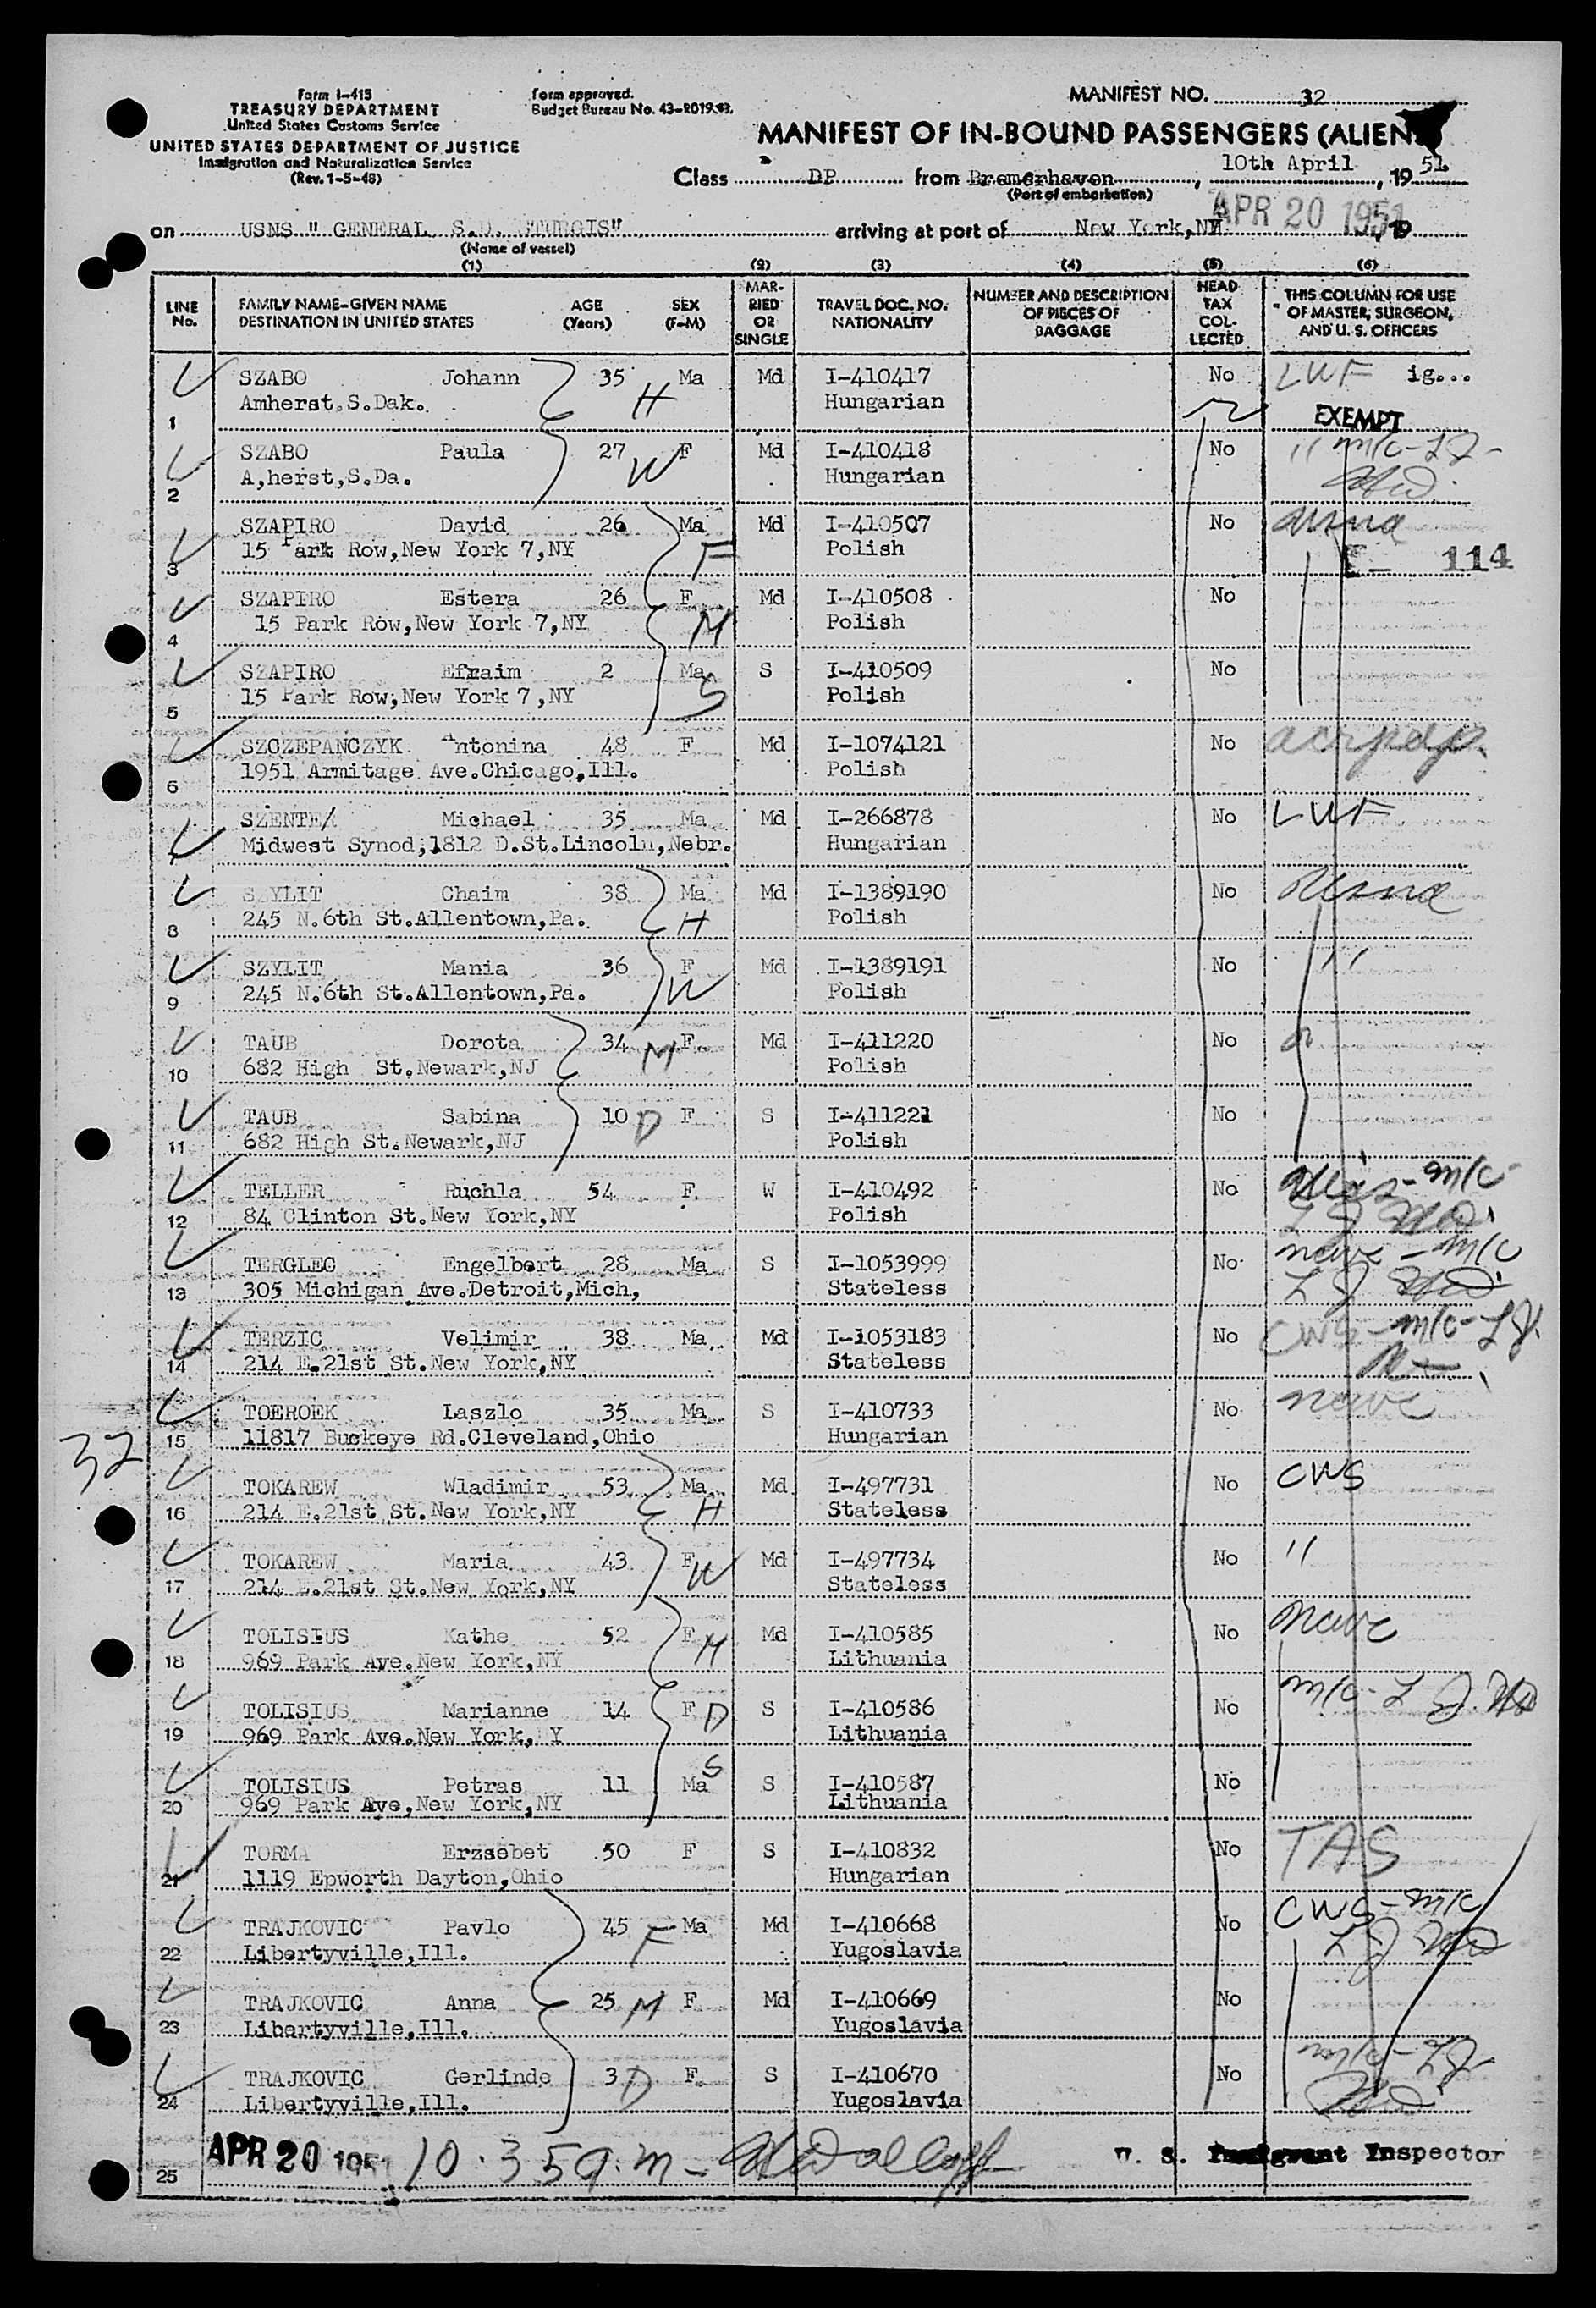 Form I-415
TREASURY DEPARTMENT
United States Customs Service
UNITED STATES DEPARTMENT OF JUSTICE
Immigration and Naturalization Service
(Rev. 1-5-48)
Form approved.
Budget Bureau No. 43-R019.
MANIFEST NO. 32
MANIFEST OF IN-BOUND PASSENGERS (ALIEN
Class DP from Bremerhaven, 10th April, 19 51
(Port of embarkation)
on USNS " GENERAL S.D. STURGIS" arriving at port of New York,NY APR 20 1951, 19
(Name of vessel)
(1) (2) (3) (4) (5) (6)
LINE No. FAMILY NAME-GIVEN NAME DESTINATION IN UNITED STATES AGE (Years) SEX (F-M) MARRIED OR SINGLE TRAVEL DOC. NO. NATIONALITY NUMBER AND DESCRIPTION OF PIECES OF BAGGAGE HEAD TAX COLLECTED THIS COLUMN FOR USE OF MASTER, SURGEON, AND U. S. OFFICERS
SZABO Johann 35 Ma Md I-410417 No LWF ig...
Amherst.S.Dak. H Hungarian
1 EXEMPT
SZABO Paula 27 F Md I-410418 No " m/c-LJ-
A,herst,S.Da. W Hungarian
2
SZAPIRO David 26 Ma Md I-410507 No
15 Park Row,New York 7,NY F Polish 114
3
SZAPIRO Estera 26 F Md I-410508 No
15 Park Row,New York 7,NY M Polish
4
SZAPIRO Efraim 2 Ma S I-410509 No
15 Park Row,New York 7,NY S Polish
5
SZCZEPANCZYK Antonina 48 F Md I-1074121 No
1951 Armitage Ave.Chicago,Ill. Polish
6
SZENTE Michael 35 Ma Md I-266878 No LWF
Midwest Synod,1812 D.St.Lincoln,Nebr. Hungarian
SZYLIT Chaim 38 Ma Md I-1389190 No
245 N.6th St.Allentown,Pa. H Polish
8
SZYLIT Mania 36 F Md I-1389191 No "
245 N.6th St.Allentown,Pa. W Polish
9
TAUB Dorota 34 M F Md I-411220 No
682 High St.Newark,NJ Polish
10
TAUB Sabina 10 D F S I-411221 No
682 High St.Newark,NJ Polish
11
TELLER Ruchla 54 F W I-410492 No m/c-
84 Clinton St.New York,NY Polish
12
TERGLEC Engelbert 28 Ma S I-1053999 No ncwc - m/c
305 Michigan Ave.Detroit,Mich, Stateless
13
TERZIC Velimir 38 Ma Md I-1053183 No CWS-m/c-LJ.
214 E.21st St.New York,NY Stateless
14
TOEROEK Laszlo 35 Ma S I-410733 No ncwc
11817 Buckeye Rd.Cleveland,Ohio Hungarian
15
32
TOKAREW Wladimir 53 Ma Md I-497731 No CWS
214 E.21st St.New York,NY H Stateless
16
TOKAREW Maria 43 F Md I-497734 No "
214 E.21st St.New York,NY W Stateless
17
TOLISIUS Kathe 52 F Md I-410585 No ncwc
969 Park Ave.New York,NY M Lithuania
18
TOLISIUS Marianne 14 F D S I-410586 No m/c-L J.
969 Park Ave.New York, Y Lithuania
19
TOLISIUS Petras 11 Ma S S I-410587 No
969 Park Ave,New York,NY Lithuania
20
TORMA Erzsebet 50 F S I-410832 No TAS
1119 Epworth Dayton,Ohio Hungarian
21
TRAJKOVIC Pavlo 45 F Ma Md I-410668 No CWS-m/c
Libertyville,Ill. Yugoslavia
22
TRAJKOVIC Anna 25 M F Md I-410669 No
Libertyville,Ill. Yugoslavia
23
TRAJKOVIC Gerlinde 3 D F S I-410670 No
Libertyville,Ill. Yugoslavia
24
APR 20 1951 10.35 a.m- U. S. Immigrant Inspector
25